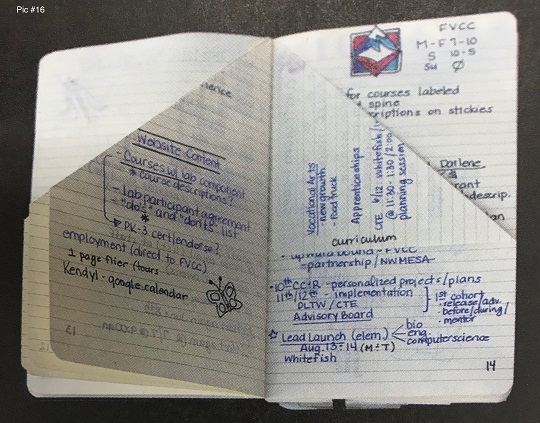 Pic #16
Website Content
- Courses w/ lab component
* course descriptions?
- lab participant agreement
- "do's" and "don'ts" list
*
PK-3 cert/endorse?
employment (direct to FVCC)
1 page flier /tours
Kendyl - google calendar
13
FVCC
M-F 7-10
S 10-5
Su Ø
for courses labeled
spine
criptions on stickies
Darlene
rant
descrip.
an
Vocational Arts
- new growth
- food truck
Apprenticeships
CTE 6/12 Whitefish/
@ 11:30-1:30/2:00
planning session
curriculum
- upward bound - FVCC
- partnership / NWMESA
- 10th CCR - personalized projects/plans
11th/12th - implementation
PLTW / CTE
Advisory Board
1st cohort
- release/adv.
- before/during/
- mentor
☆ Lead Launch (elem.)
bio
eng.
computer science
Aug. 13-14 (M-T)
Whitefish
14